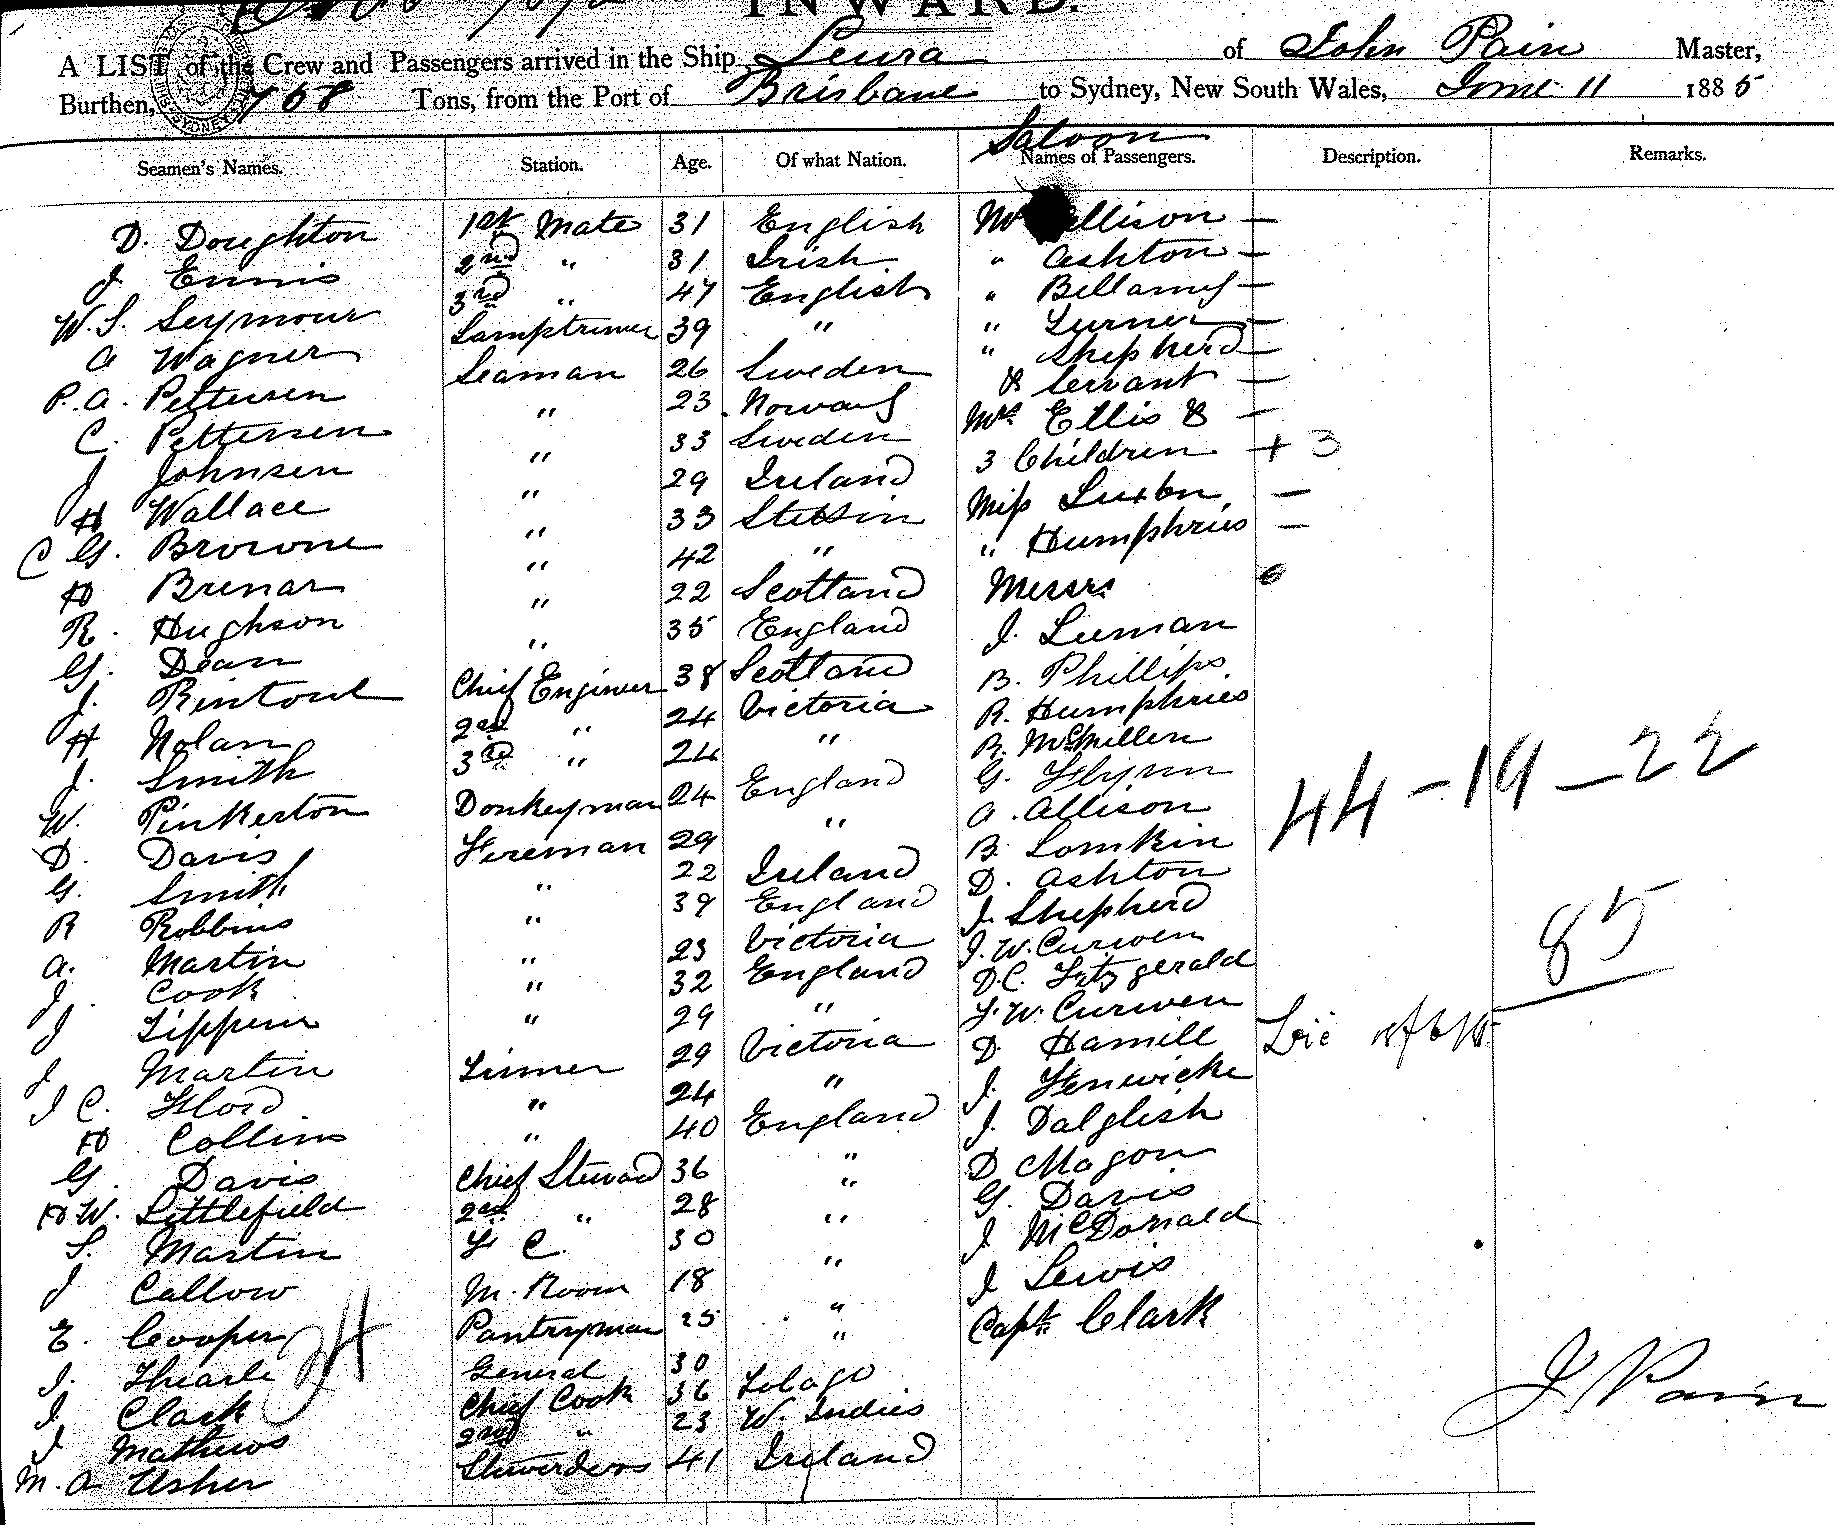 INWARD.
A LIST of the Crew and Passengers arrived in the Ship Leura of John Pain Master,
Burthen, 768 Tons, from the Port of Brisbane to Sydney, New South Wales, June 11 1885
Saloon
Seamen's Names. Station. Age. Of what Nation. Names of Passengers. Description. Remarks.
D. Doughton 1st Mate 31 English Mrs Allison —
J Ennis 2nd " 31 Irish " Ashton —
W. S. Seymour 3rd " 47 English " Bellamy —
A Wagner Lamptrimer 39 " " Turner —
P. A. Pettersen Seaman 26 Sweden " Shepherd —
C. Pettersen " 23 Norway & Servant —
J Johnsen " 33 Sweden Mrs Ellis & —
H Wallace " 29 Ireland 3 Children + 3
C G. Browne " 33 Stettin Miss Luxton —
H Brenar " 42 " " Humphries —
R. Hughson " 22 Scotland Messrs 6
G. Dean " 35 England J. Luman
J. Rintoul Chief Engineer 38 Scotland B. Phillips
H Nolan 2nd " 24 Victoria R. Humphries
J. Smith 3rd " 24 " R. McMillen
W. Pinkerton Donkeyman 24 England G. Flynn
D. Davis Fireman 29 " A. Allison 44-19-22
G. Smith " 22 Ireland B. Lomkin
R Robbins " 39 England D. Ashton
A. Martin " 23 Victoria J. Shepherd 85
J. Cook " 32 England J. W. Curwen
J Tippem " 29 " D.C. Fitzgerald
J. Martin Trimer 29 Victoria F. W. Curwen
J C. Flord " 24 " D. Hamill
H Collins " 40 England J. Fenwicke
G. Davis Chief Steward 36 " J. Dalglish
H W. Littlefield 2nd " 28 " D Magon
S. Martin F C. 30 " G. Davis
J Callow M. Room 18 " J McDonald
E. Cooper Pantryman 25 " J Lewis
J. Thearle General 30 " Capt. Clark
J. Clark Chief Cook 36 Tobago
J Mathews 2nd " 23 W. Indies
M. A. Usher Stewerdess 41 Ireland
J. Pain